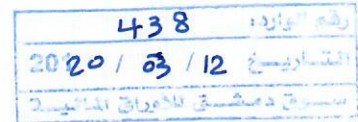 رقم الوارد: 438
التاريخ 12 / 03 / 2020
سوق دمشق للأوراق المالية